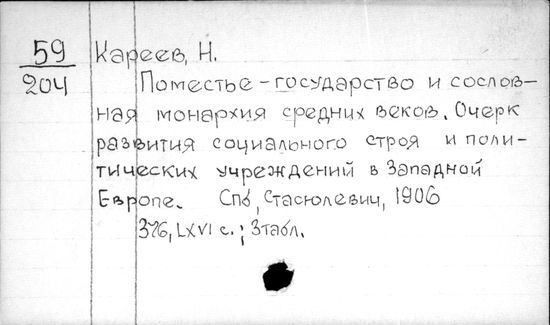 59 Кареев, Н.
204 Поместье-государство и сослов-
ная монархия средних веков. Очерк
развития социального строя и поли-
тических учреждений в Западной
Европе. Спб, Стасюлевич, 1906
376, LXVI с.; 3табл.